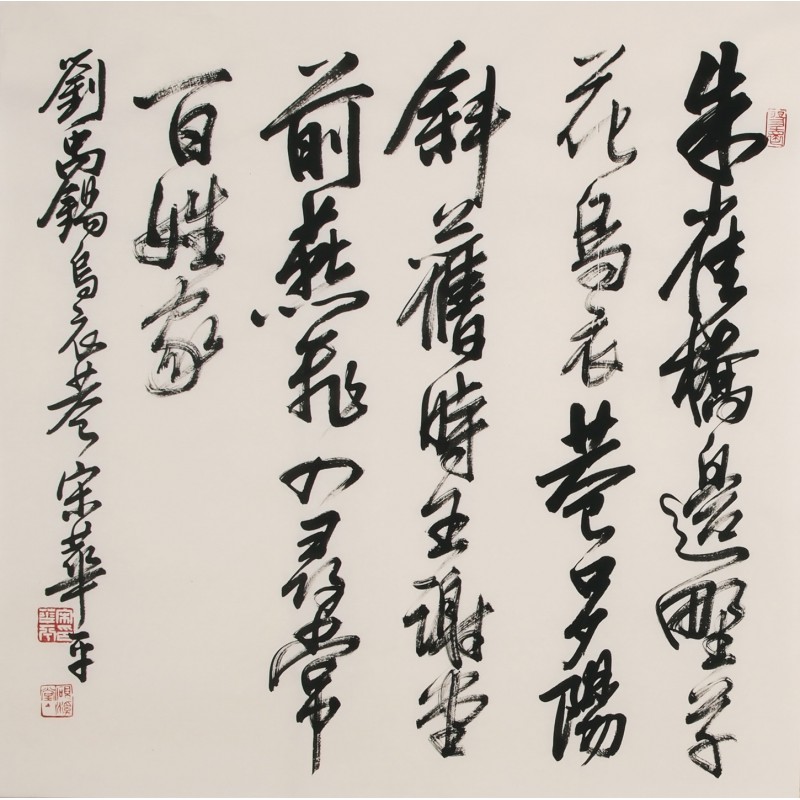 朱雀橋邊野草
花烏衣巷口夕陽
斜舊時王謝堂
前燕飛入尋常
百姓家
劉禹錫烏衣巷宋華平